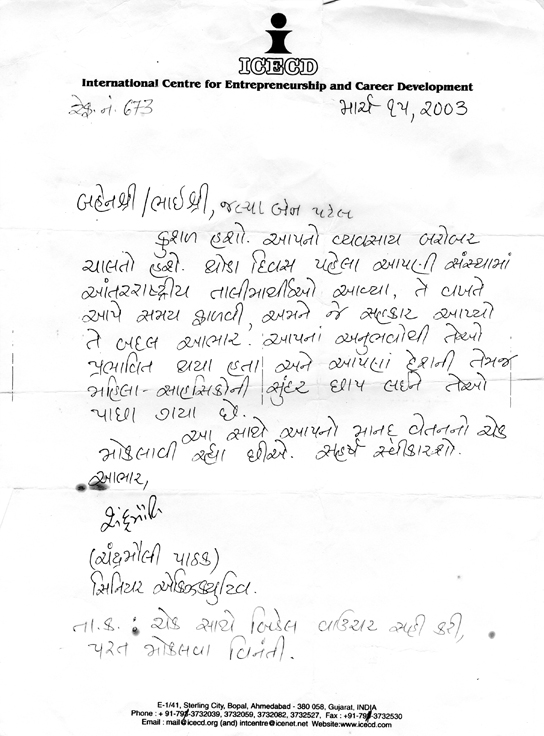 ICECD
International Centre for Entrepreneurship and Career Development
રેફ. નં. 673
માર્ચ ૧૫, 2003
બહેનશ્રી/ભાઈશ્રી, જલ્પા બેન પટેલ
કુશળ હશો. આપનો વ્યવસાય બરોબર
ચાલતો હશે. થોડા દિવસ પહેલા આપણી સંસ્થામાં
આંતરરાષ્ટ્રીય તાલીમાર્થીઓ આવ્યા, તે વખતે
આપે સમય ફાળવી, અમને જે સહકાર આપ્યો
તે બદલ આભાર. આપનાં અનુભવોથી તેઓ
પ્રભાવિત થયા હતા અને આપણાં દેશની તેમજ
મહિલા-સાહસિકોની સુંદર છાપ લઈને તેઓ
પાછા ગયા છે.
આ સાથે આપનો માનદ્ વેતનનો ચેક
મોકલાવી રહ્યા છીએ. સહર્ષ સ્વીકારશો.
આભાર,
(ચંદ્રમૌલી પાઠક)
સિનિયર એક્ઝિક્યુટિવ.
તા.ક. : ચેક સાથે બિડેલ વાઉચર સહી કરી,
પરત મોકલવા વિનંતી.
E-1/41, Sterling City, Bopal, Ahmedabad - 380 058, Gujarat, INDIA
Phone : + 91-79-3732039, 3732059, 3732082, 3732527, Fax : +91-79-3732530
Email : mail@icecd.org (and) intcentre@icenet.net Website:www.icecd.com